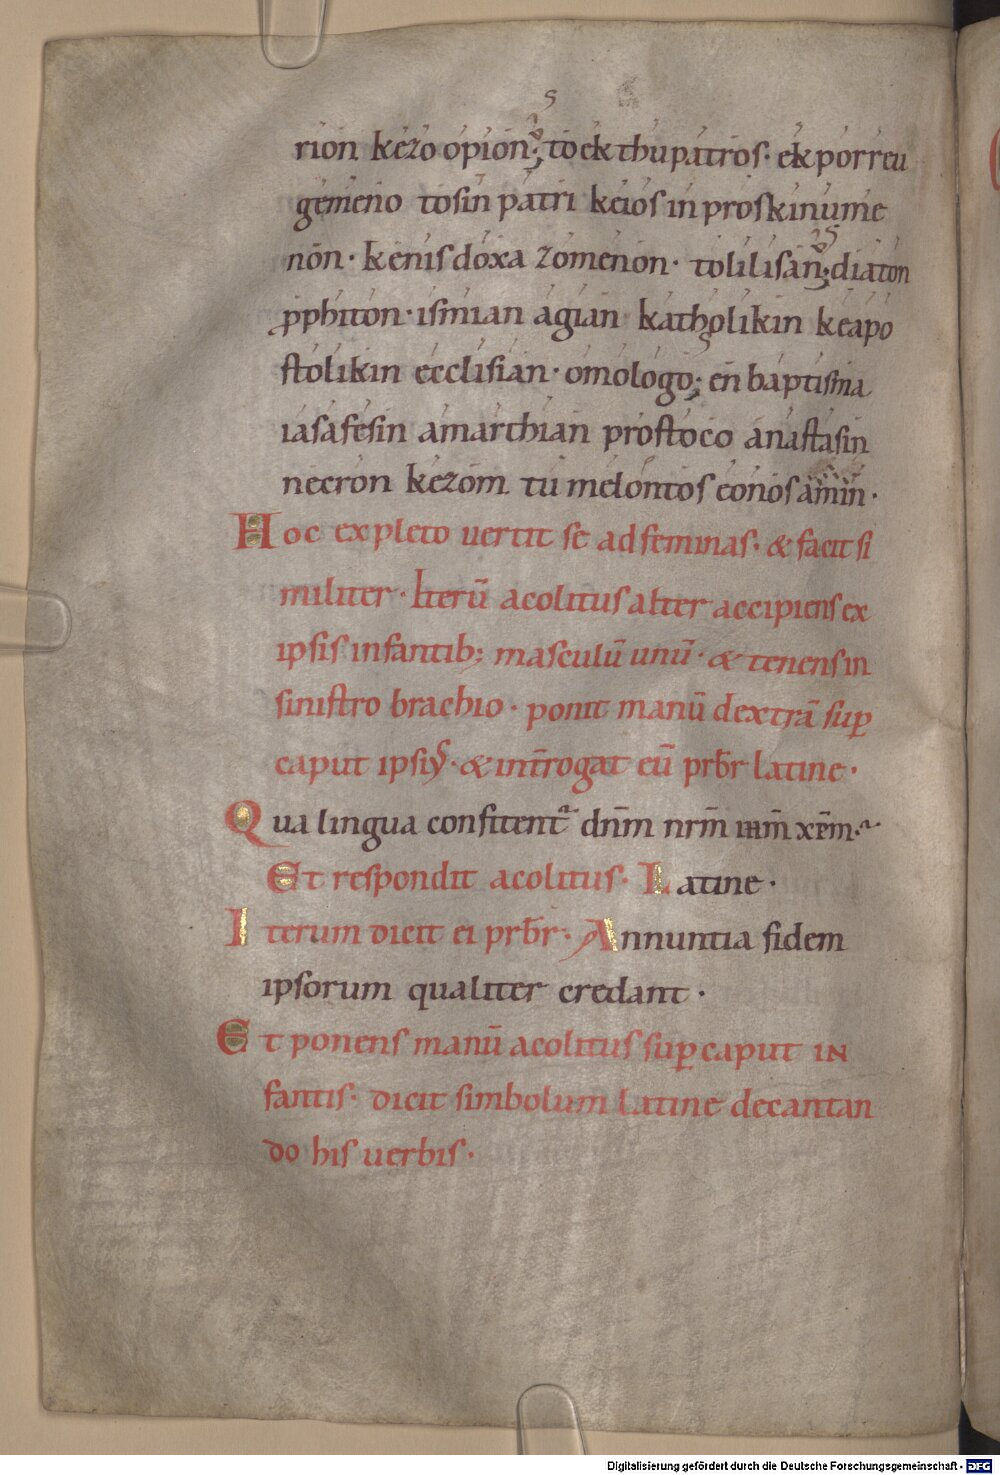 rion kezo opion; to ek thu patros· ek porreu
gemeno tosin patri keios in proskinume
non· kenis doxa zomenon· to lilisan; diaton
pphiton· ismian agian katholikin keapo
stolikin ecclisian· omologo; en baptisma
iasafesin amarthian prostoco anastasin
necron kezoin tu melontos eonos amin·
Hoc expleto uertit se ad feminas· & facit si
militer· Iterū acolitus alter accipiens ex
ipsis infantib; masculū unū· & tenens in
sinistro brachio· ponit manū dextrā sup
caput ipsiꝰ· & int̄rogat eū prb̄r latine·
Qua lingua confitent᷑ dn̄m nr̄m ihm̄ xp̄m·
Et respondit acolitus· Latine·
Iterum dicit ei prb̄r· Annuntia fidem
ipsorum qualiter credant·
Et ponens manū acolitus sup caput in
fantis· dicit simbolum latine decantan
do his uerbis·
Digitalisierung gefördert durch die Deutsche Forschungsgemeinschaft - DFG